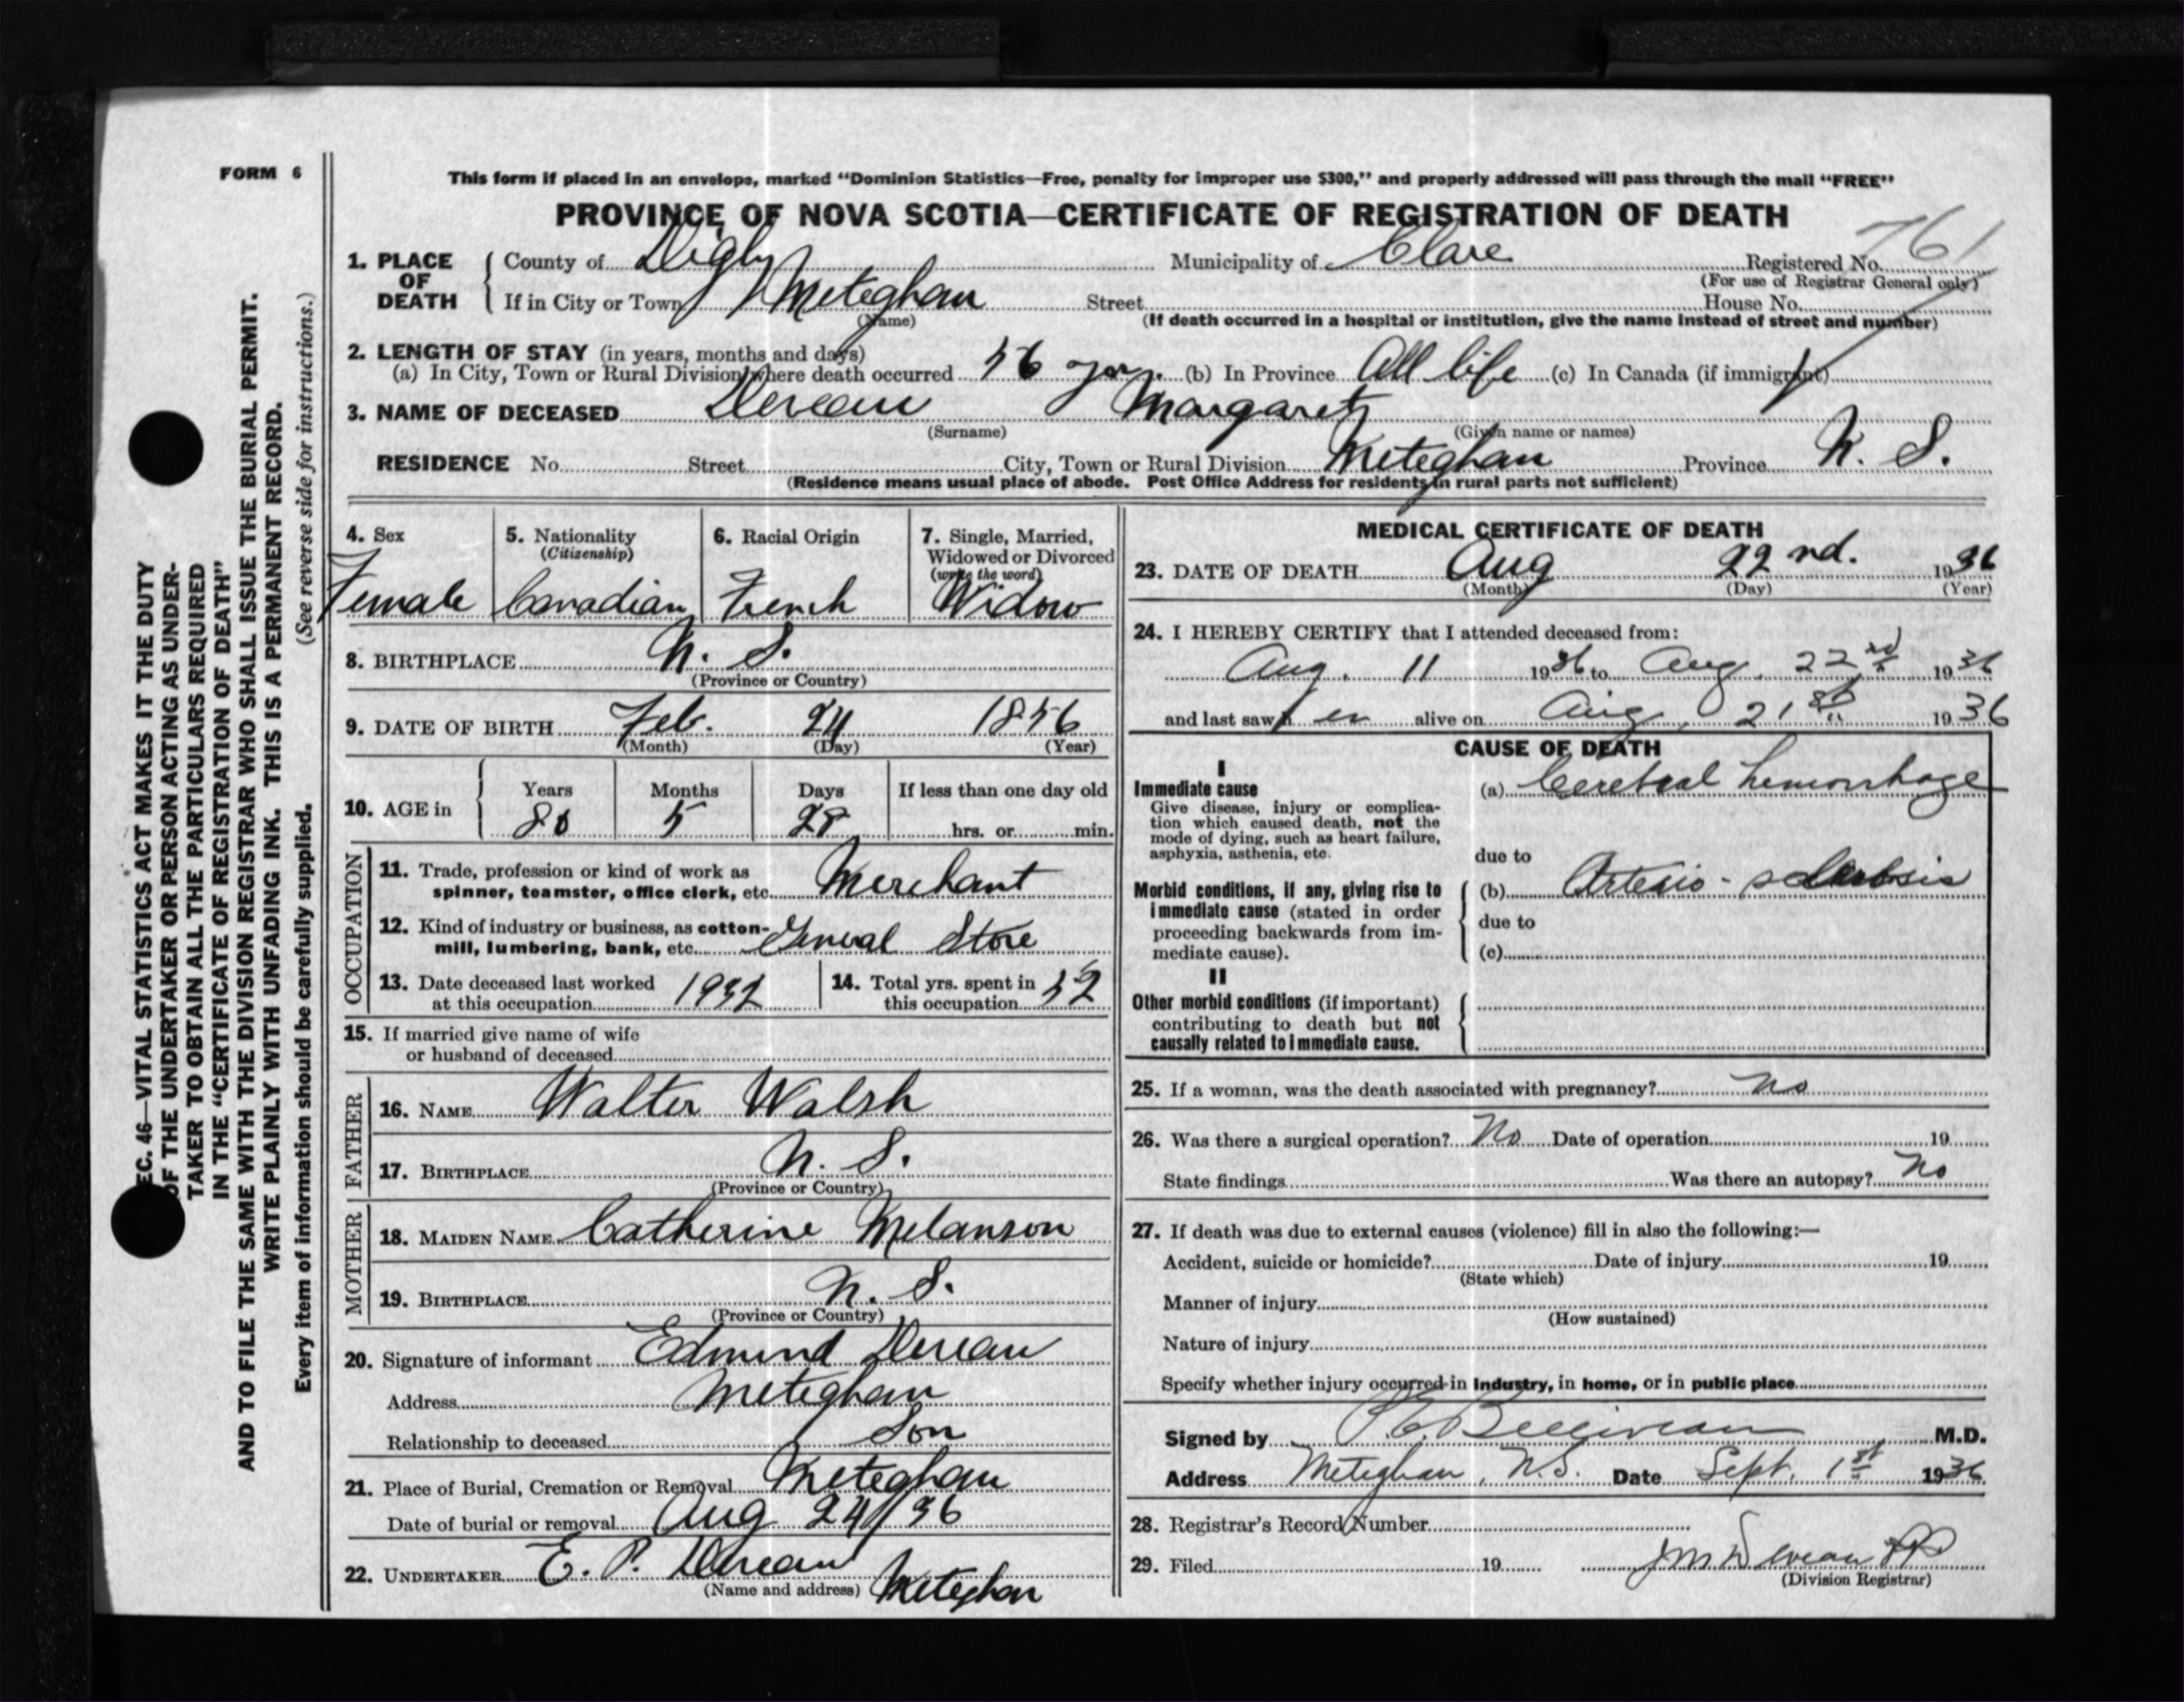 FORM 6
This form if placed in an envelope, marked “Dominion Statistics—Free, penalty for improper use $300,” and properly addressed will pass through the mail “FREE”
PROVINCE OF NOVA SCOTIA—CERTIFICATE OF REGISTRATION OF DEATH
761
1. PLACE OF DEATH { County of Digby Municipality of Clare Registered No.
(For use of Registrar General only)
If in City or Town Meteghan Street House No.
(Name) (If death occurred in a hospital or institution, give the name instead of street and number)
2. LENGTH OF STAY (in years, months and days)
(a) In City, Town or Rural Division where death occurred 56 yrs. (b) In Province All life (c) In Canada (if immigrant)
3. NAME OF DECEASED Deveau Margaret
(Surname) (Given name or names)
RESIDENCE No. Street City, Town or Rural Division Meteghan Province N. S.
(Residence means usual place of abode. Post Office Address for residents in rural parts not sufficient)
4. Sex Female
5. Nationality (Citizenship) Canadian
6. Racial Origin French
7. Single, Married, Widowed or Divorced (write the word) Widow
8. BIRTHPLACE N. S.
(Province or Country)
9. DATE OF BIRTH Feb. 24 1856
(Month) (Day) (Year)
10. AGE in Years Months Days If less than one day old
80 5 28 hrs. or min.
OCCUPATION
11. Trade, profession or kind of work as
spinner, teamster, office clerk, etc. Merchant
12. Kind of industry or business, as cotton-
mill, lumbering, bank, etc. General Store
13. Date deceased last worked
at this occupation 1932
14. Total yrs. spent in
this occupation 52
15. If married give name of wife
or husband of deceased
FATHER
16. NAME Walter Walsh
17. BIRTHPLACE N. S.
(Province or Country)
MOTHER
18. MAIDEN NAME Catherine Melanson
19. BIRTHPLACE N. S.
(Province or Country)
20. Signature of informant Edmund Deveau
Address Meteghan
Relationship to deceased Son
21. Place of Burial, Cremation or Removal Meteghan
Date of burial or removal Aug 24/36
22. UNDERTAKER E. P. Deveau Meteghan
(Name and address)
MEDICAL CERTIFICATE OF DEATH
23. DATE OF DEATH Aug 22nd. 1936
(Month) (Day) (Year)
24. I HEREBY CERTIFY that I attended deceased from:
Aug. 11 1936 to Aug. 22nd 1936
and last saw h er alive on Aug. 21st 1936
CAUSE OF DEATH
I
Immediate cause (a) Cerebral hemorrhage
Give disease, injury or complica-
tion which caused death, not the
mode of dying, such as heart failure,
asphyxia, asthenia, etc.
due to
Morbid conditions, if any, giving rise to (b) Arterio-sclerosis
immediate cause (stated in order due to
proceeding backwards from im-
mediate cause). (c)
II
Other morbid conditions (if important)
contributing to death but not
causally related to immediate cause.
25. If a woman, was the death associated with pregnancy? No
26. Was there a surgical operation? No Date of operation 19
State findings Was there an autopsy? No
27. If death was due to external causes (violence) fill in also the following:—
Accident, suicide or homicide? Date of injury 19
(State which)
Manner of injury
(How sustained)
Nature of injury
Specify whether injury occurred in industry, in home, or in public place
Signed by P.E. Belliveau M.D.
Address Meteghan, N.S. Date Sept. 1st 1936
28. Registrar's Record Number
29. Filed 19 J M Deveau
(Division Registrar)
EC. 46—VITAL STATISTICS ACT MAKES IT THE DUTY
OF THE UNDERTAKER OR PERSON ACTING AS UNDER-
TAKER TO OBTAIN ALL THE PARTICULARS REQUIRED
IN THE “CERTIFICATE OF REGISTRATION OF DEATH”
AND TO FILE THE SAME WITH THE DIVISION REGISTRAR WHO SHALL ISSUE THE BURIAL PERMIT.
WRITE PLAINLY WITH UNFADING INK. THIS IS A PERMANENT RECORD.
Every item of information should be carefully supplied. (See reverse side for instructions.)